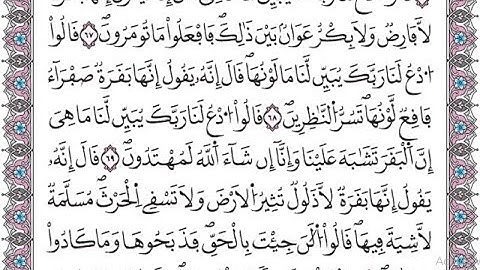 لَّا فَارِضٌ وَلَا بِكْرٌ عَوَانٌ بَيْنَ ذَٰلِكَۖ فَافْعَلُواْ مَا تُومَرُونَۖ ٦٧ قَالُواْ
اُدْعُ لَنَا رَبَّكَ يُبَيِّن لَّنَا مَا لَوْنُهَاۖ قَالَ إِنَّهُۥ يَقُولُ إِنَّهَا بَقَرَةٌ صَفْرَآءُ
فَاقِعٌ لَّوْنُهَا تَسُرُّ اُلنَّٰظِرِينَۖ ٦٨ قَالُواْ اُدْعُ لَنَا رَبَّكَ يُبَيِّن لَّنَا مَا هِيَ
إِنَّ اَلْبَقَرَ تَشَٰبَهَ عَلَيْنَا وَإِنَّآ إِن شَآءَ اَللَّهُ لَمُهْتَدُونَۖ ٦٩ قَالَ إِنَّهُۥ
يَقُولُ إِنَّهَا بَقَرَةٌ لَّا ذَلُولٌ تُثِيرُ اُلْأَرْضَ وَلَا تَسْقِي اِلْحَرْثَۖ مُسَلَّمَةٌ
لَّا شِيَةَ فِيهَاۖ قَالُواْ اُلْـَٰٔنَ جِئْتَ بِالْحَقِّۖ فَذَبَحُوهَا وَمَا كَادُواْ